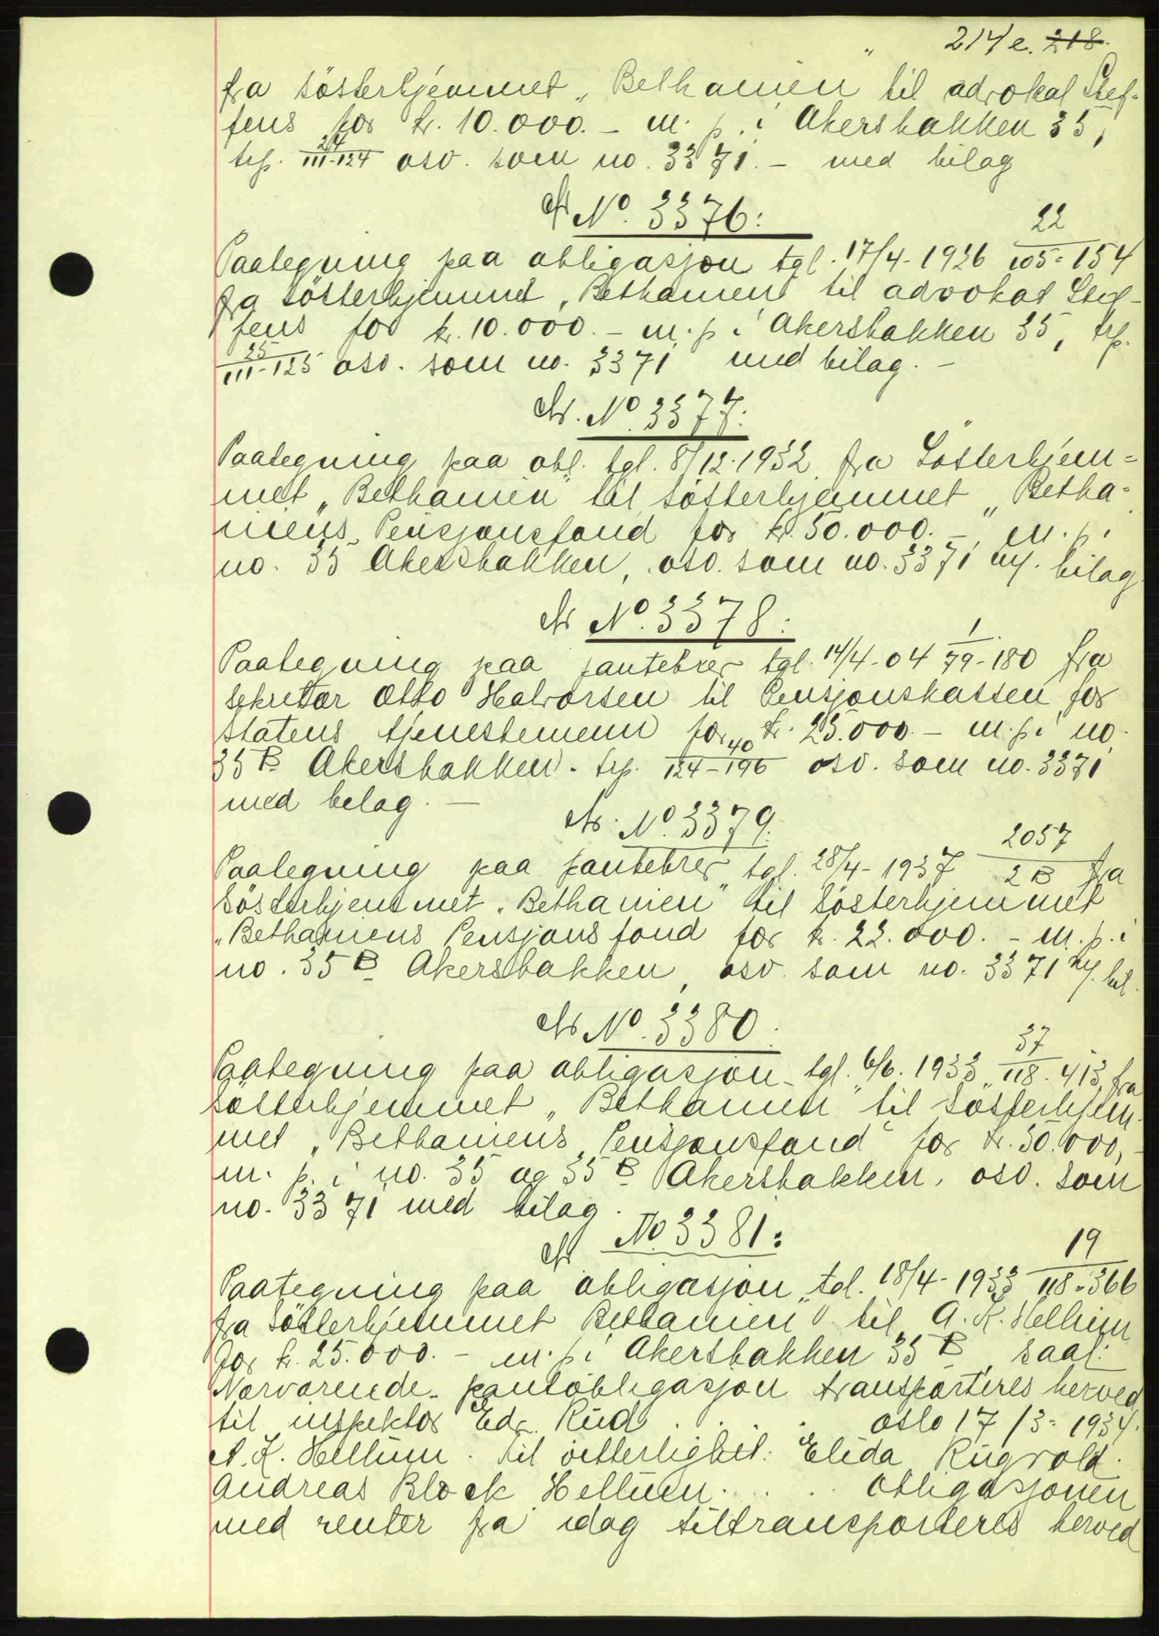 214 e. 218.
fra Søsterhjemmet „Bethanien" til advokat Stef-
fens for kr. 10.000.- m. p. i Akersbakken 35,
trp. 24/III-124 osv. som no. 3371.- med bilag
No. 3376:
Paategning paa obligasjon tgl. 17/4-1926 22/105-154
fra Søsterhjemmet „Bethanien" til advokat Stef-
fens for kr. 10.000.- m. p. i Akersbakken 35, trp.
25/III-125 osv. som no. 3371 med bilag.-
Nr. No. 3377:
Paategning paa obl. tgl. 8/12-1932 fra Søsterhjem=
met „Bethanien" til Søsterhjemmet „Betha-
niens Pensjonsfond for kr. 50.000.- m. p. i
no. 35 Akersbakken, osv. som no. 3371 m/. bilag
Nr No. 3378:
Paategning paa pantebrev tgl. 14/4-04 1/79-180 fra
sekretær Otto Halvorsen til Pensjonskassen for
Statens tjenestemenn for kr. 25.000.- m. p. i no.
35 B Akersbakken. trp. 40/124-196 osv. som no. 3371
med bilag.-
Nr. No. 3379.
Paategning paa pantebrev tgl. 28/4-1937 2057/2 B fra
Søsterhjemmet „Bethanien" til Søsterhjemmet
„Bethaniens Pensjonsfond for kr. 22.000.- m. p. i
no. 35 B Akersbakken, osv. som no. 3371 m/. bil.
Nr No. 3380:
Paategning paa obligasjon tgl. 6/6. 1933 37/118-413 fra
Søsterhjemmet „Bethanien" til Søsterhjem-
met „Bethaniens Pensjonsfond" for kr. 30.000,-
m. p. i no. 35 og 35 B Akersbakken, osv. som
no. 3371 med bilag.
Nr No. 3381:
Paategning paa obligasjon tgl. 18/4-1933 19/118-366
fra Søsterhjemmet Bethanien" til A. K. Hellum
for kr. 25.000.- m. p. i Akersbakken 35 B, saal:
Nærværende pantobligasjon transporteres herved
til inspektør Edv. Rud. . . . Oslo 17/3-1934.
A. K. Hellum. Til vitterlighet: Elida Rugvold.
Andreas Block Hellum. . . . Obligasjonen
med renter fra idag tiltransporteres herved